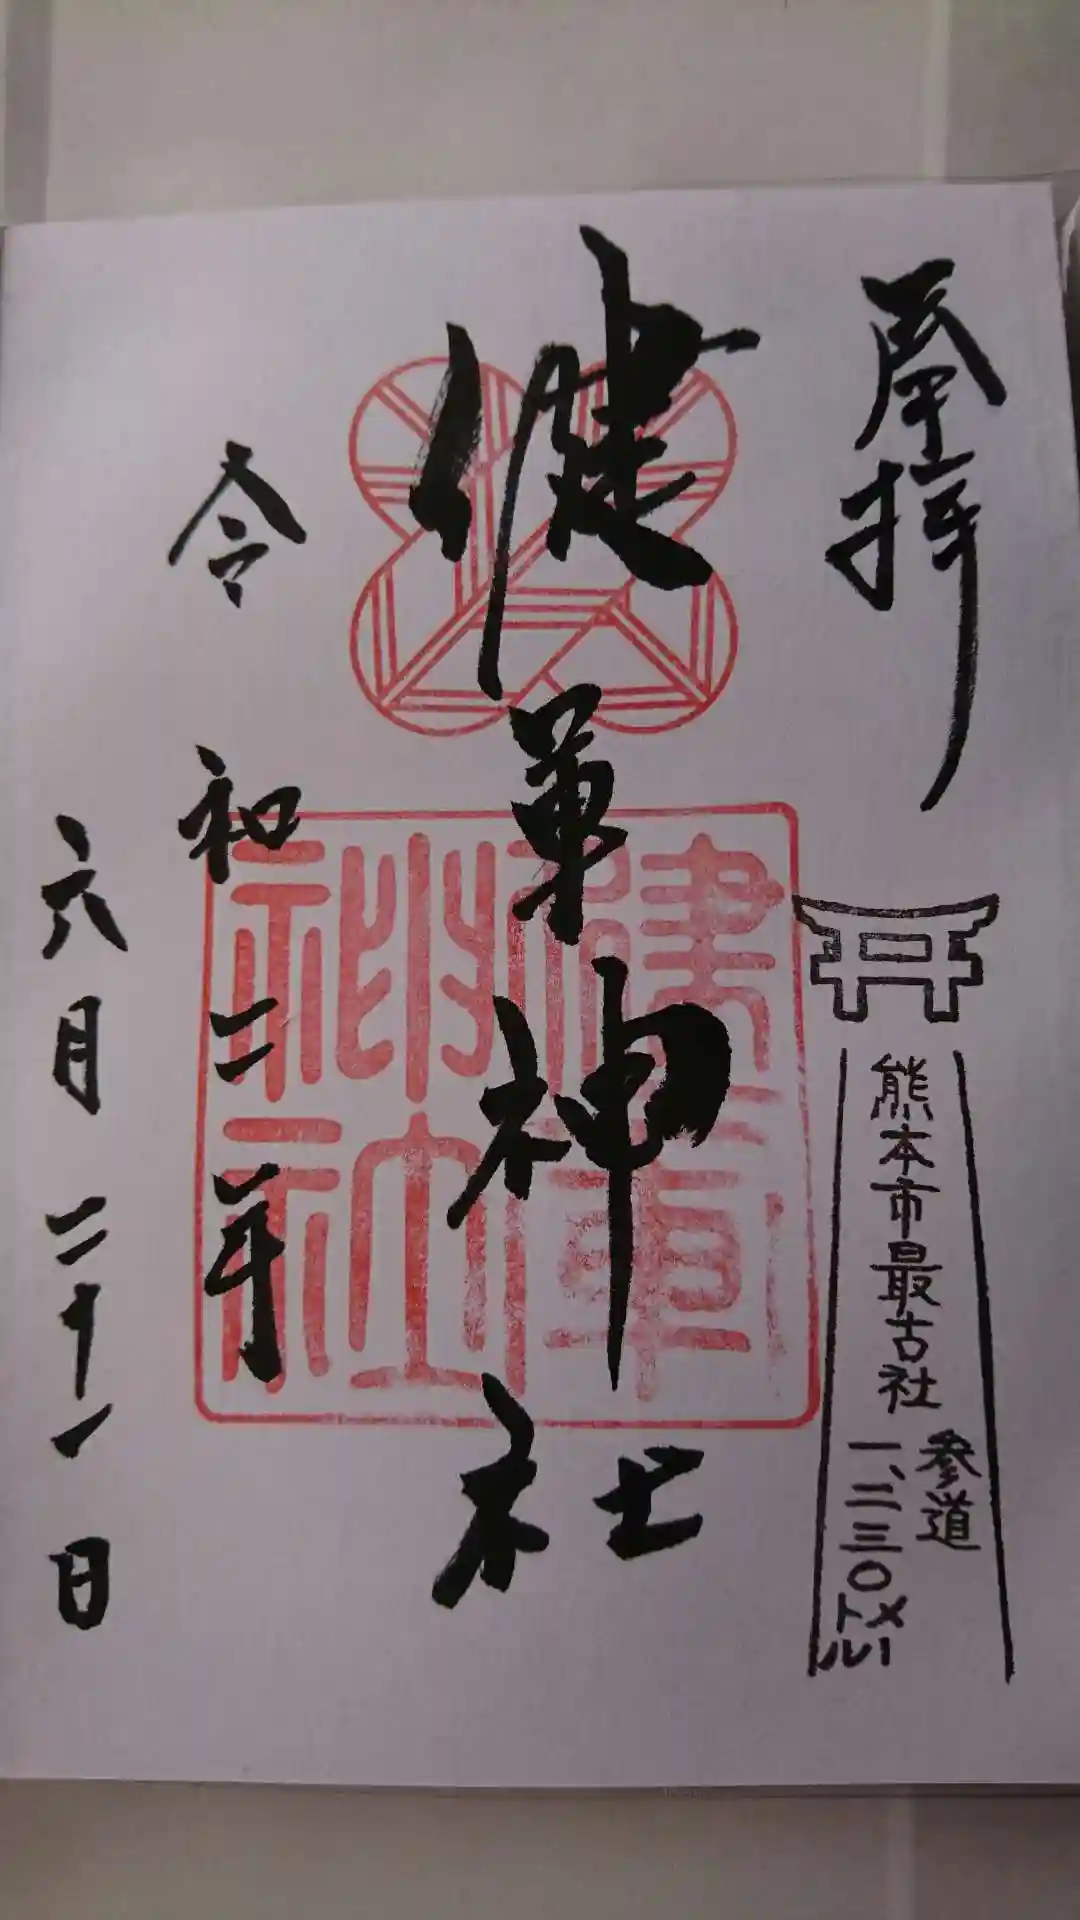 奉拝
熊本市最古社
参道
一、二三〇メートル
健軍神社
健軍
神社
令和二年
六月二十一日